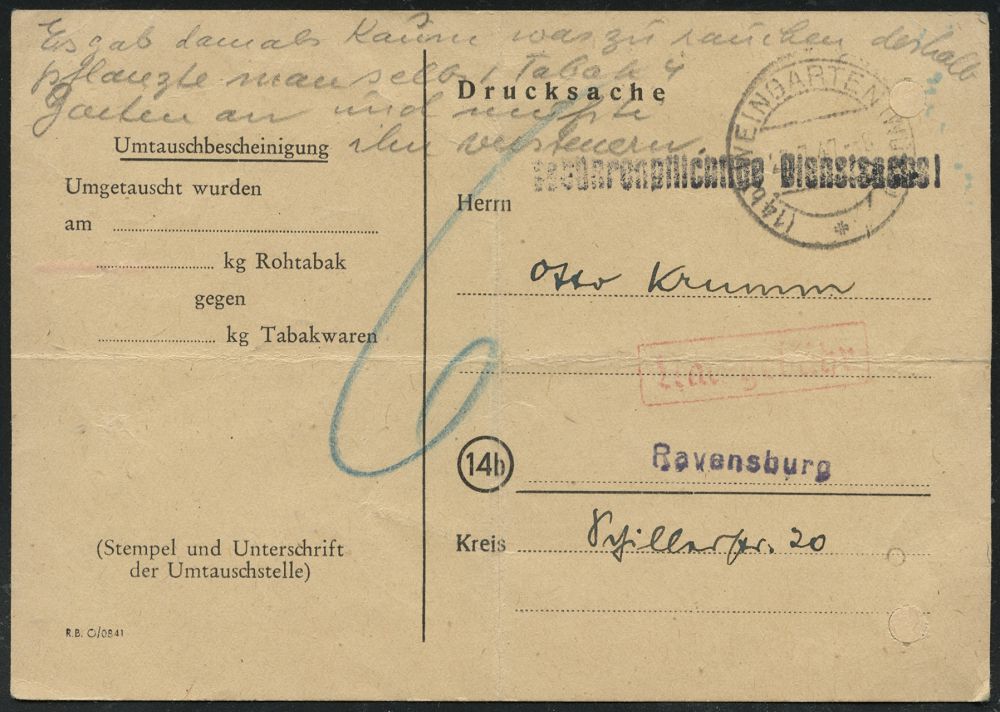 Es gab damals kaum was zu rauchen deshalb
pflanzte man selbst Tabak
Garten an und mußte
ihn versteuern.
Umtauschbescheinigung
Umgetauscht wurden
am
kg Rohtabak
gegen
kg Tabakwaren
(Stempel und Unterschrift
der Umtauschstelle)
R.B. O/0841
Drucksache
(14b) WEINGARTEN
Gebührenpflichtige Dienstsache!
Herrn
Otto Krumm
Nachgebühr
14b
Ravensburg
Kreis
Schillerstr. 20
6